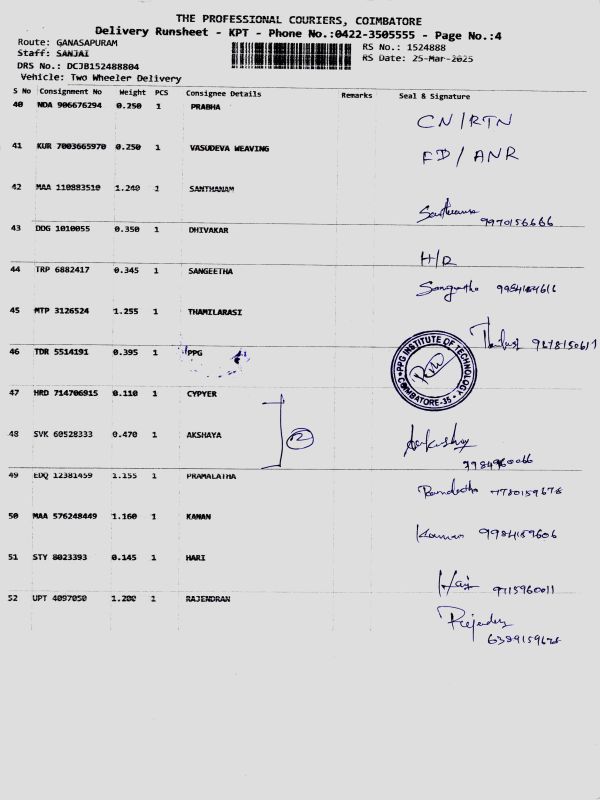 THE PROFESSIONAL COURIERS, COIMBATORE
Delivery Runsheet - KPT - Phone No.:0422-3505555 - Page No.:4
Route: GANASAPURAM
Staff: SANJAI
DRS No.: DCJB152488804
Vehicle: Two Wheeler Delivery
RS No.: 1524888
RS Date: 25-Mar-2025
S No Consignment No Weight PCS Consignee Details Remarks Seal & Signature
40 NDA 906676294 0.250 1 PRABHA CN/RTN
41 KUR 7003665970 0.250 1 VASUDEVA WEAVING FD/ANR
42 MAA 110883510 1.240 1 SANTHANAM
9970156666
43 DDG 1010055 0.350 1 DHIVAKAR H/D
44 TRP 6882417 0.345 1 SANGEETHA
45 MTP 3126524 1.255 1 THAMILARASI
46 TDR 5514191 0.395 1 PPG
PPG INSTITUTE OF TECHNOLOGY
COIMBATORE-35
47 HRD 714706915 0.110 1 CYPYER
2
48 SVK 60528333 0.470 1 AKSHAYA
49 EDQ 12381459 1.155 1 PRAMALATHA
50 MAA 576248449 1.160 1 KANAN
9984159606
51 STY 8023393 0.145 1 HARI
Hari 9715960011
52 UPT 4097050 1.200 1 RAJENDRAN